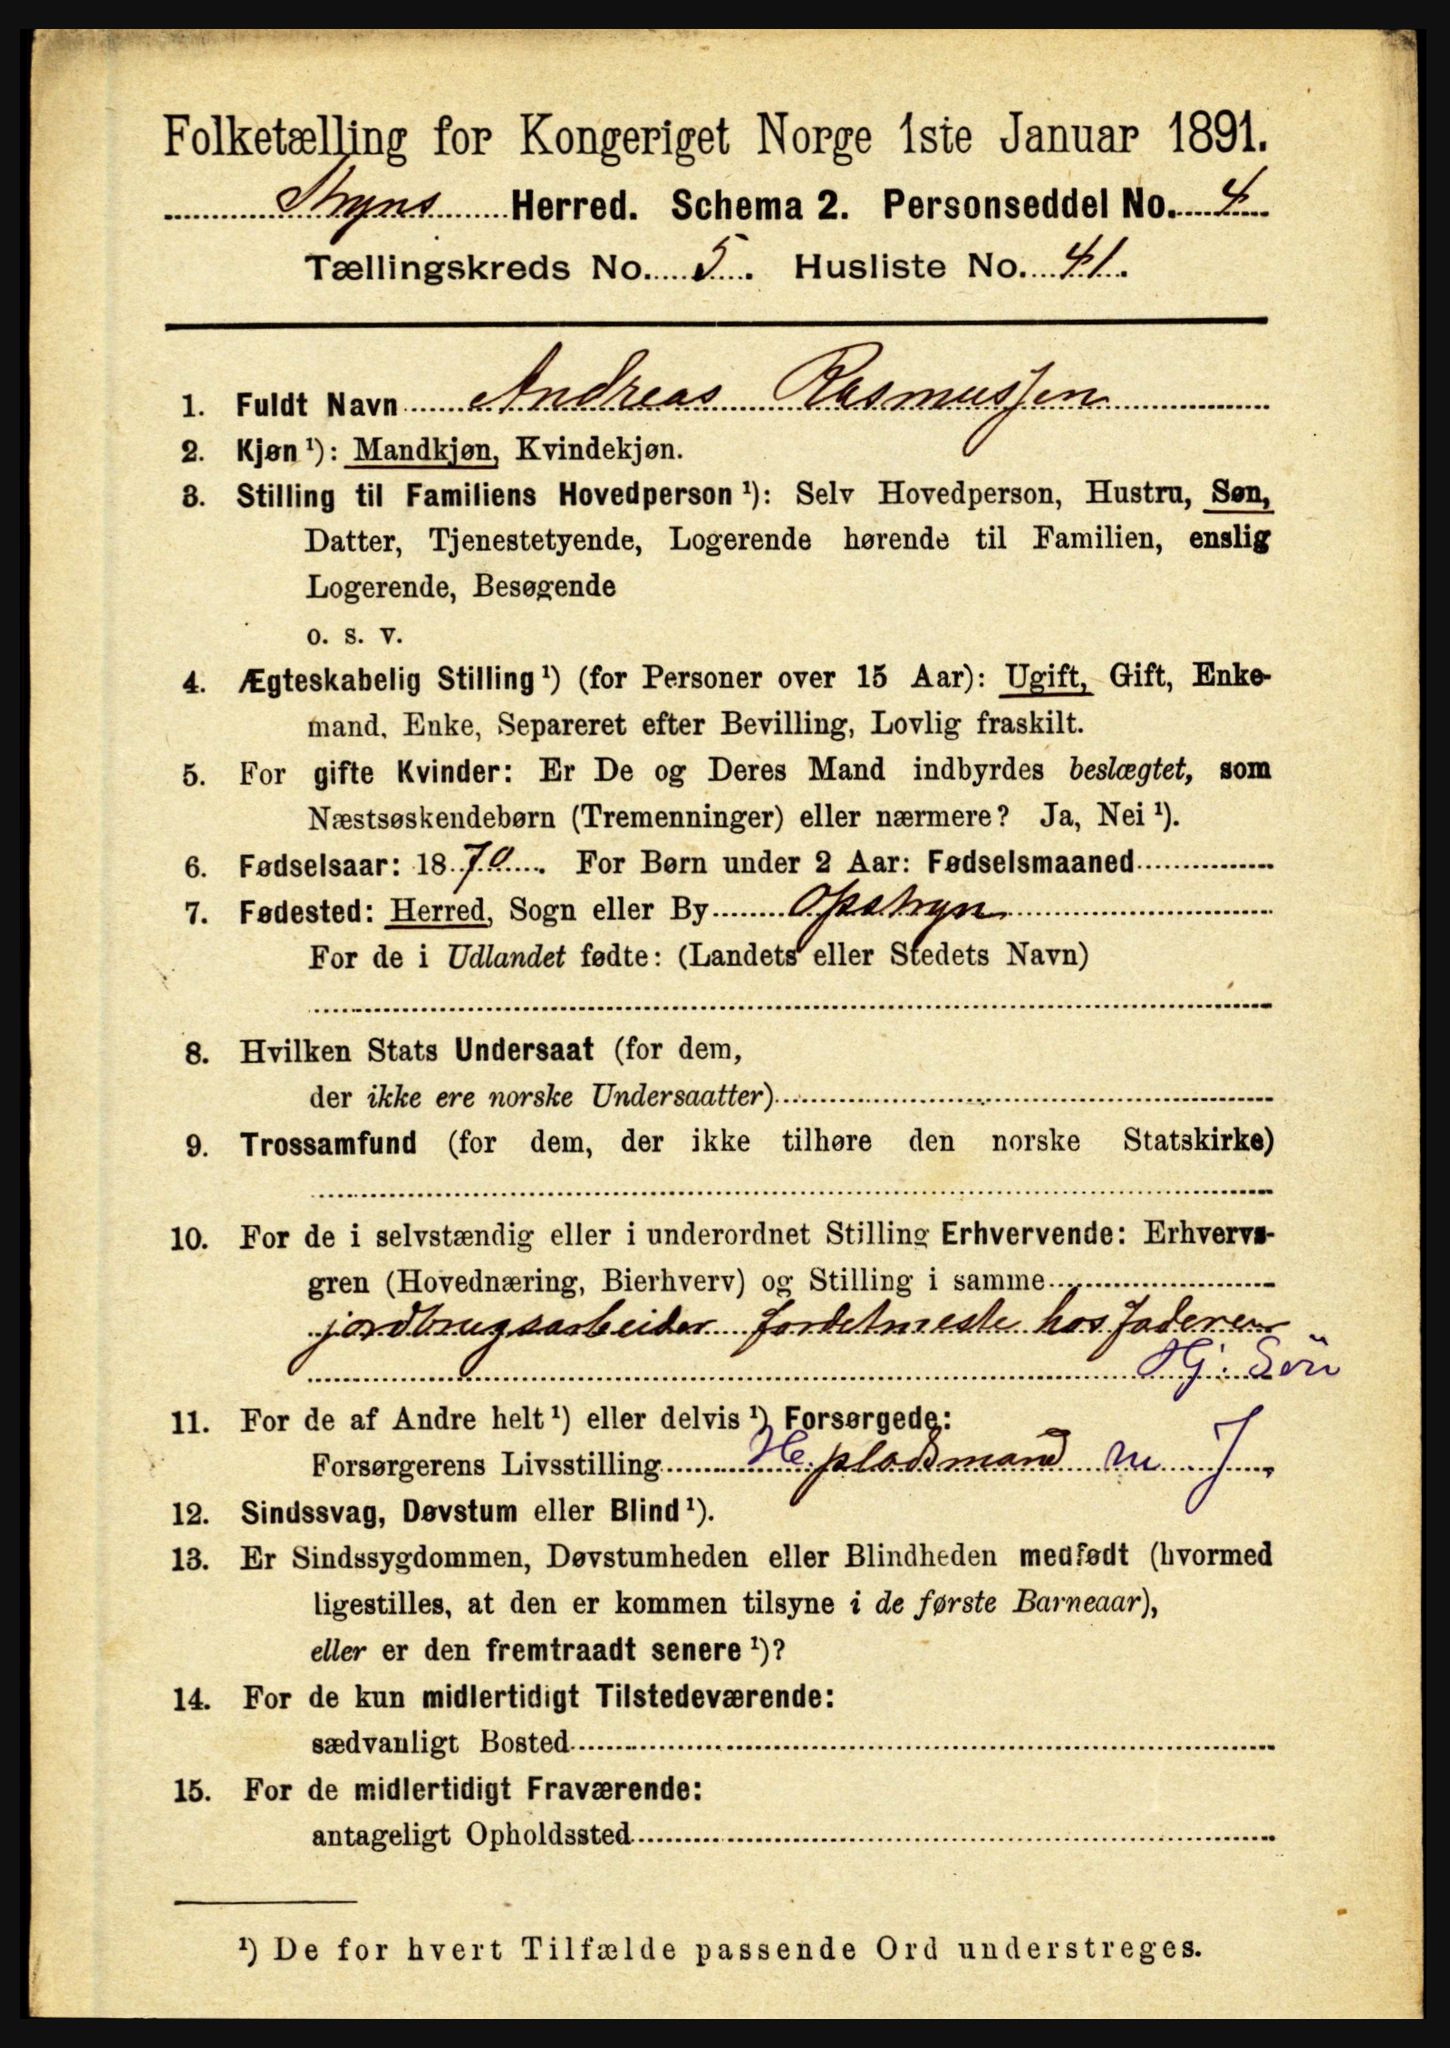 Folketælling for Kongeriget Norge 1ste Januar 1891.
Stryns Herred. Schema 2. Personseddel No. 4
Tællingskreds No. 5. Husliste No. 41.
1. Fuldt Navn Andreas Rasmussen
2. Kjøn ¹): Mandkjøn, Kvindekjøn.
3. Stilling til Familiens Hovedperson ¹): Selv Hovedperson, Hustru, Søn,
Datter, Tjenestetyende, Logerende hørende til Familien, enslig
Logerende, Besøgende
o. s. v.
4. Ægteskabelig Stilling ¹) (for Personer over 15 Aar): Ugift, Gift, Enke-
mand, Enke, Separeret efter Bevilling, Lovlig fraskilt.
5. For gifte Kvinder: Er De og Deres Mand indbyrdes beslægtet, som
Næstsøskendebørn (Tremenninger) eller nærmere? Ja, Nei ¹).
6. Fødselsaar: 1870. For Børn under 2 Aar: Fødselsmaaned
7. Fødested: Herred, Sogn eller By Opstryn
For de i Udlandet fødte: (Landets eller Stedets Navn)
8. Hvilken Stats Undersaat (for dem,
der ikke ere norske Undersaatter)
9. Trossamfund (for dem, der ikke tilhøre den norske Statskirke)
10. For de i selvstændig eller i underordnet Stilling Erhvervende: Erhvervs-
gren (Hovednæring, Bierhverv) og Stilling i samme
jordbrugsarbeider fordetmeste hos faderen
Hj. Søn
11. For de af Andre helt ¹) eller delvis ¹) Forsørgede:
Forsørgerens Livsstilling He. pladsmand m J.
12. Sindssvag, Døvstum eller Blind ¹).
13. Er Sindssygdommen, Døvstumheden eller Blindheden medfødt (hvormed
ligestilles, at den er kommen tilsyne i de første Barneaar),
eller er den fremtraadt senere ¹)?
14. For de kun midlertidigt Tilstedeværende:
sædvanligt Bosted
15. For de midlertidigt Fraværende:
antageligt Opholdssted
¹) De for hvert Tilfælde passende Ord understreges.